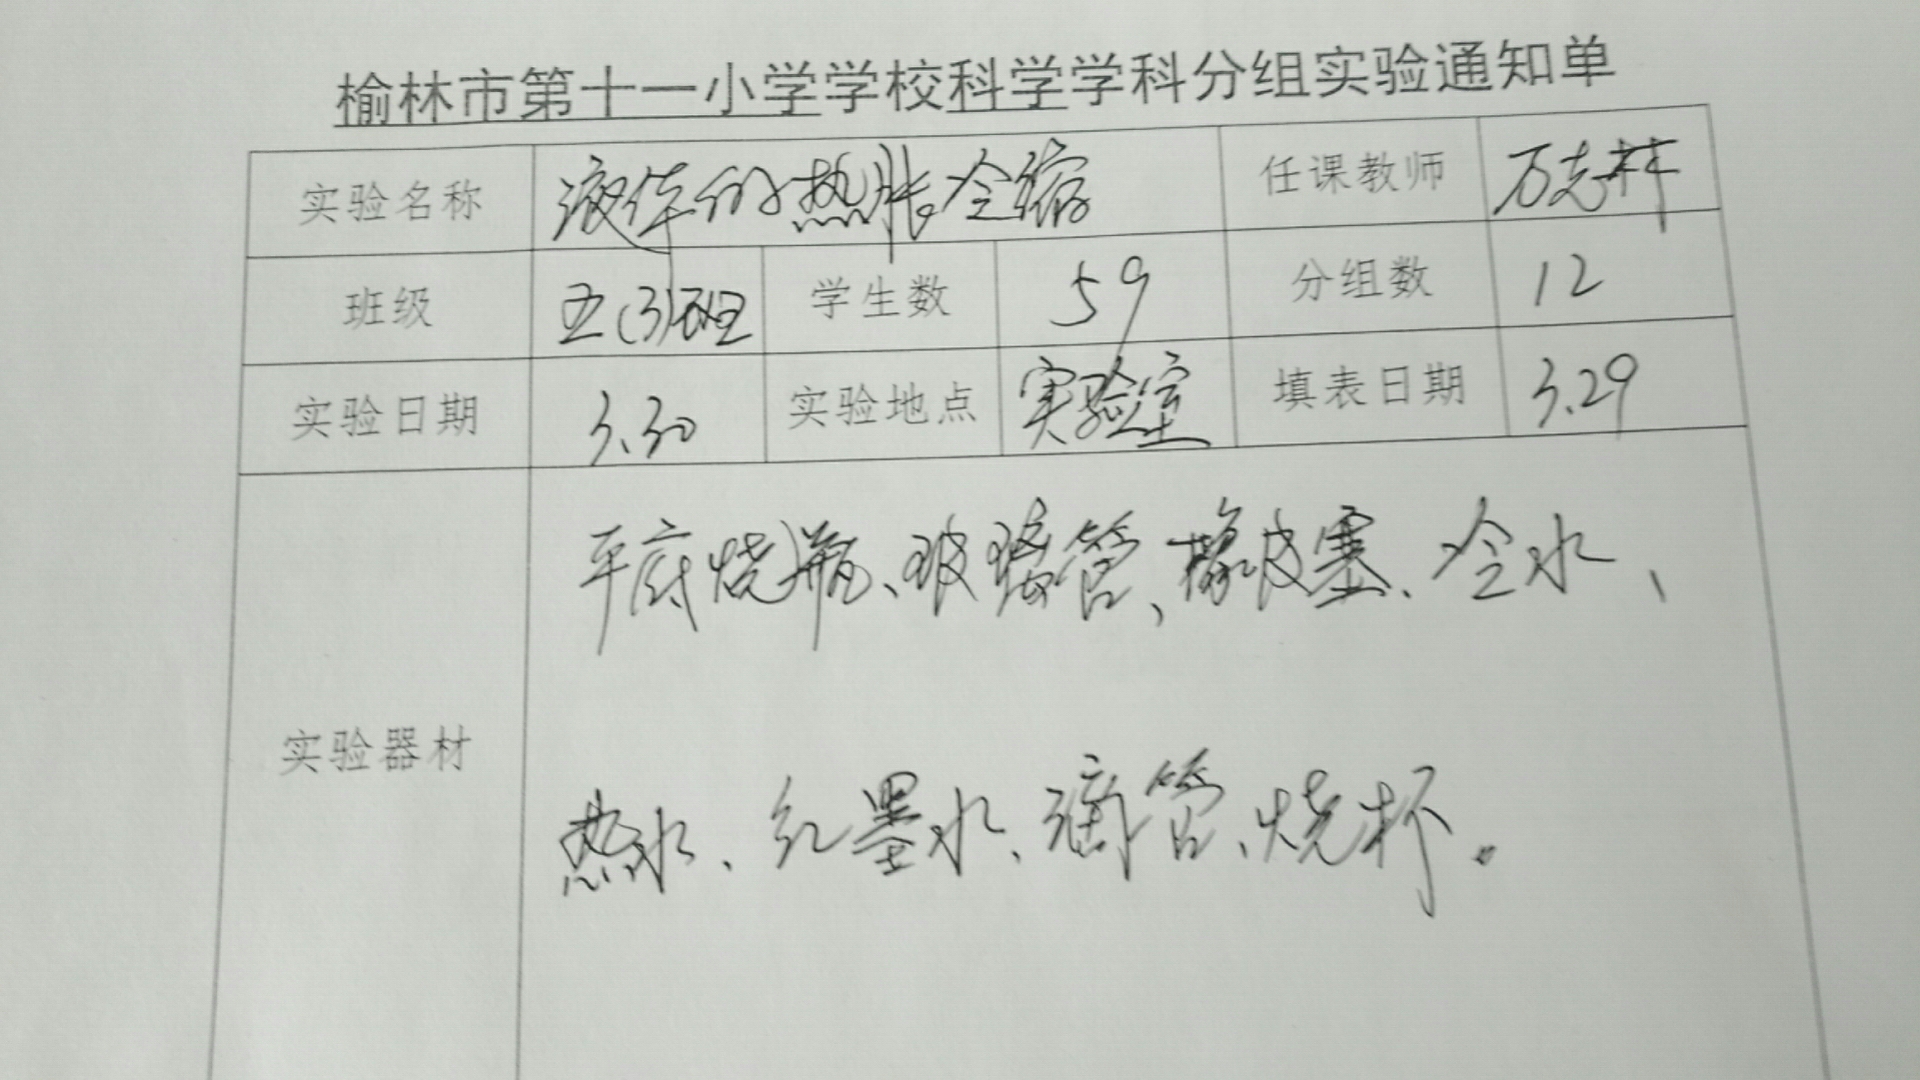 榆林市第十一小学学校科学学科分组实验通知单
实验名称 液体的热胀冷缩 任课教师 万志林
班级 五(3)班 学生数 59 分组数 12
实验日期 3.30 实验地点 实验室 填表日期 3.29
平底烧瓶、玻璃管、橡皮塞、冷水、
实验器材
热水、红墨水、滴管、烧杯。